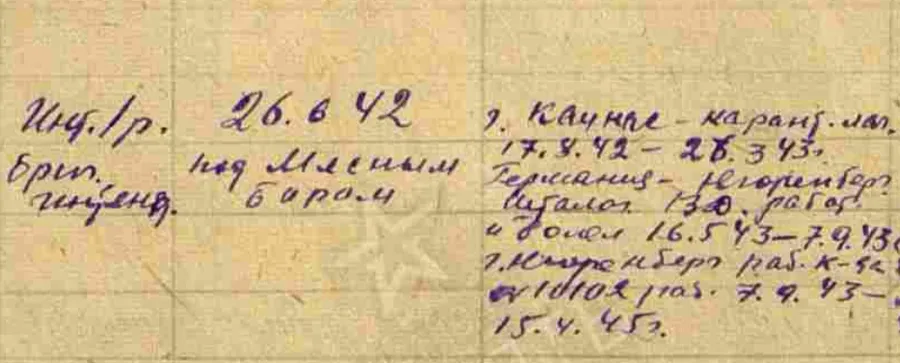 Инт. 1 р.
бриг.
интенд.
26.6 42
под Мясным
Бором
г. Каунас - карант. лаг.
17.8.42 - 28.3 43г
Германия - Нюренберг
Шталаг 13D. работ.
и болел 16.5 43 - 7.9.43г
г. Нюренберг раб. к-да
10102 раб. 7.9.43 -
15.4.45г.